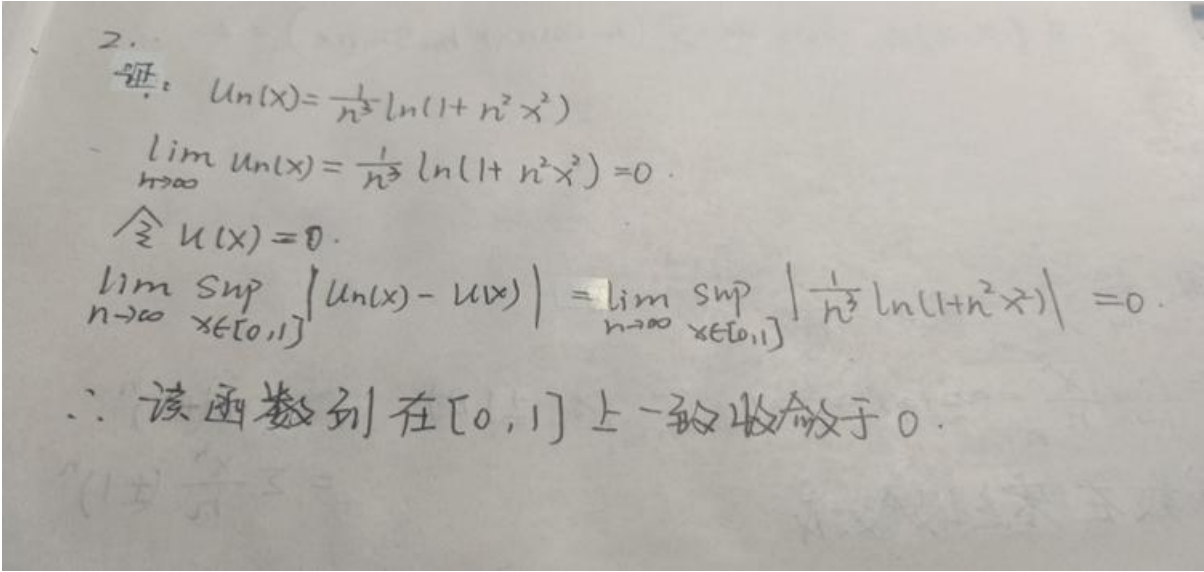 2.
证: Un(x)=1/n³ ln(1+n²x²)
lim n→∞ Un(x)=1/n³ ln(1+n²x²)=0.
令 u(x)=0.
lim n→∞ sup x∈[0,1] |Un(x)-u(x)| = lim n→∞ sup x∈[0,1] |1/n³ ln(1+n²x²)| =0.
∴ 该函数列在[0,1]上一致收敛于0.